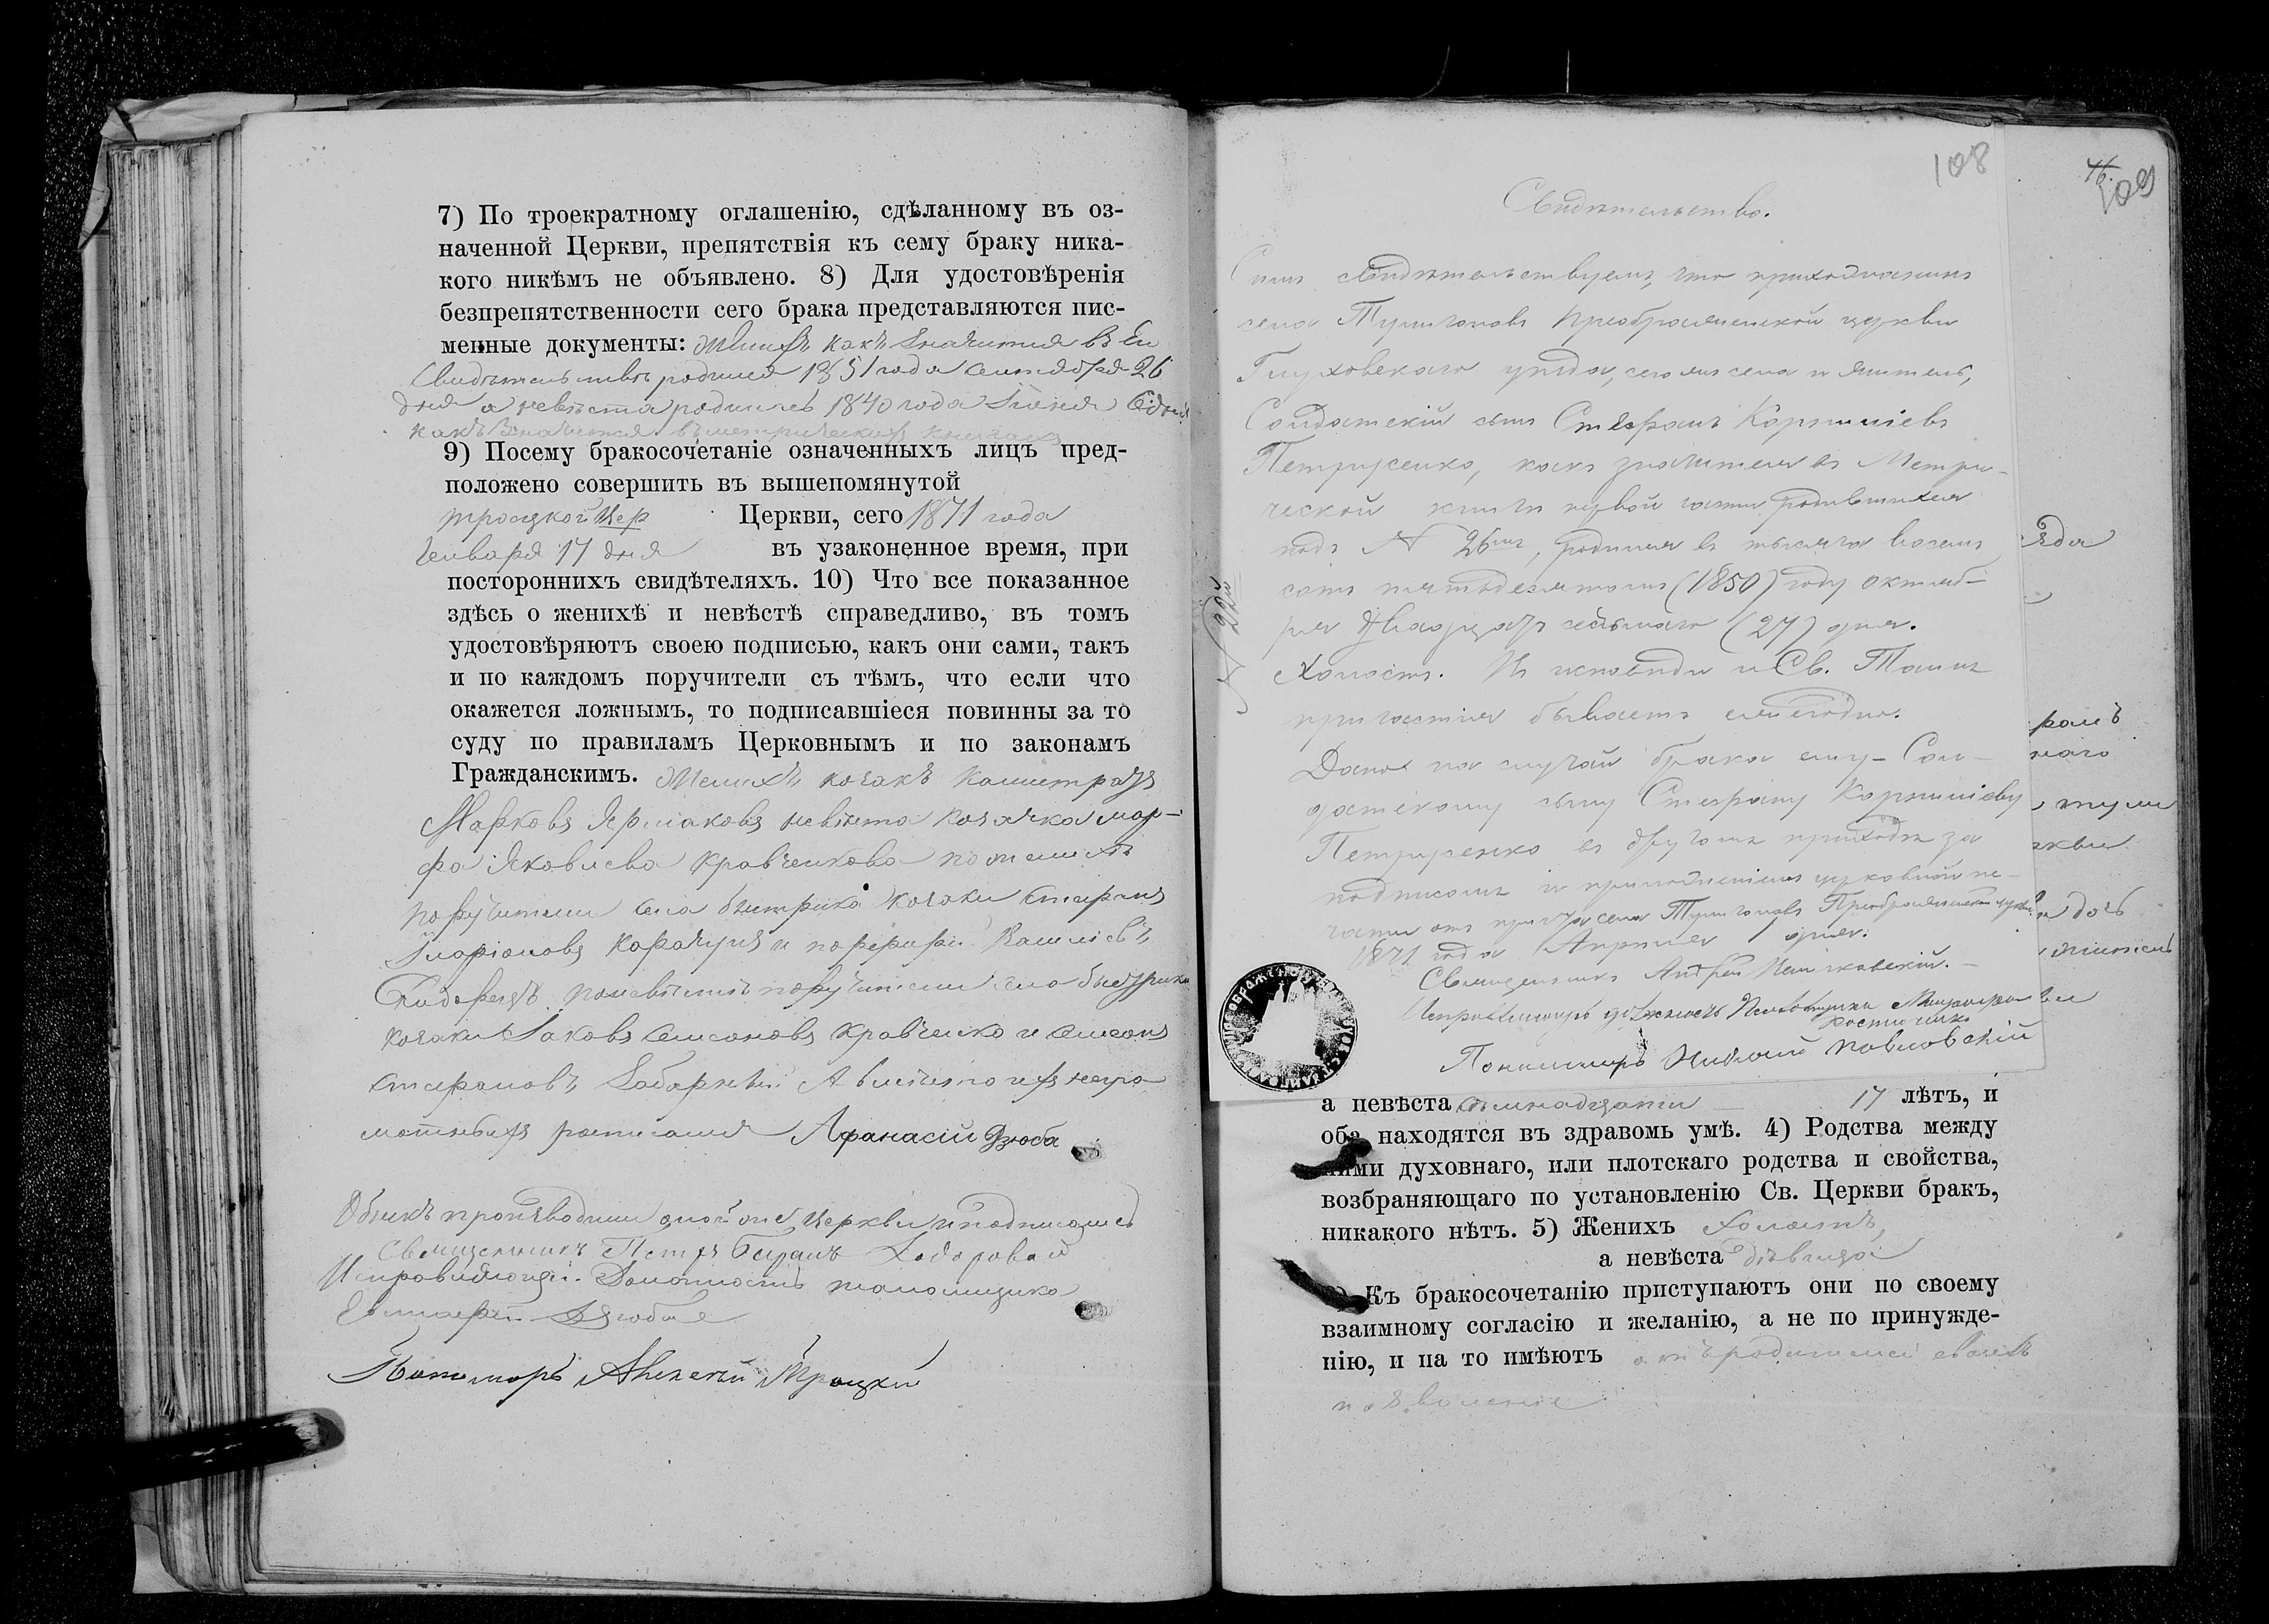 7) По троекратному оглашенію, сдѣланному въ оз-
наченной Церкви, препятствія къ сему браку ника-
кого никѣмъ не объявлено. 8) Для удостовѣренія
безпрепятственности сего брака представляются пис-
менные документы: женихъ какъ значится въ Ег
Свидѣтельствѣ родился 1851 года сентября 26
дня а невѣста родилась 1840 года Іюня
какъ значится въ метрическихъ книгахъ
9) Посему бракосочетаніе означенныхъ лицъ пред-
положено совершить въ вышепомянутой
троицкой цер Церкви, сего 1871 года
Генваря 17 дня въ узаконенное время, при
постороннихъ свидѣтеляхъ. 10) Что все показанное
здѣсь о женихѣ и невѣстѣ справедливо, въ томъ
удостовѣряютъ своею подписью, какъ они сами, такъ
и по каждомъ поручители съ тѣмъ, что если что
окажется ложнымъ, то подписавшіеся повинны за то
суду по правиламъ Церковнымъ и по законамъ
Гражданскимъ. Женихъ козакъ Калистратъ
Марковъ Ярмаковъ невѣста козачка мар-
фа Яковлева Кравченкова по женихѣ
поручители села быстрика козаки стефанъ
Иларіоновъ Карачунъ и порфирій Василіевъ
по невѣстѣ поручители села быстрика
козаки Іаковъ самсоновъ кравченко и самсонъ
стефановъ А вмѣсто ихъ негра-
мотныхъ росписался Афанасій Дзюба
Обыскъ производили оной церкви и подписались
Священникъ Петръ
Исправляющій Должность пономарщика
Евстафій Дзюба
Пономарь Алексѣй Троцкій
108
Свидѣтельство.
Симъ свидѣтельствуемъ, что прихожанинъ
села Тулиголовъ Преображенской церкви
Глуховскаго уѣзда, сего же села и житель,
Солдатскій сынъ Стефанъ Корниліевъ
Петрусенко, какъ значится въ Метри-
ческой книгѣ первой части родившихся
подъ № 26мъ, родился въ тысяча восемь
сотъ пятьдесятомъ (1850) году октяб-
ря двадцать седьмаго (27) дня.
Холостъ. На исповѣди и Св. Таинъ
причастія бываетъ ежегодно.
Дано на случай брака ему – Сол-
датскому сыну Стефану Корниліеву
Петрусенко въ другомъ приходѣ за
подписомъ и приложеніемъ церковной пе-
чати отъ причта села Тулиголовъ Преображенской церкви
1871 года Апрѣля 1 дня.
Священникъ Андрей
Исправляющій должность Псаломщика
Пономарь Николай Павловскій
№ 22й
109
ѣзда
фанъ
наго
тули
ркви
дочь
житель
а невѣста семнадцати 17 лѣтъ, и
оба находятся въ здравомъ умѣ. 4) Родства между
ними духовнаго, или плотскаго родства и свойства,
возбраняющаго по установленію Св. Церкви бракъ,
никакого нѣтъ. 5) Женихъ холостъ,
а невѣста дѣвица
Къ бракосочетанію приступаютъ они по своему
взаимному согласію и желанію, а не по принужде-
нію, и на то имѣютъ отъ родителей своихъ
позволеніе